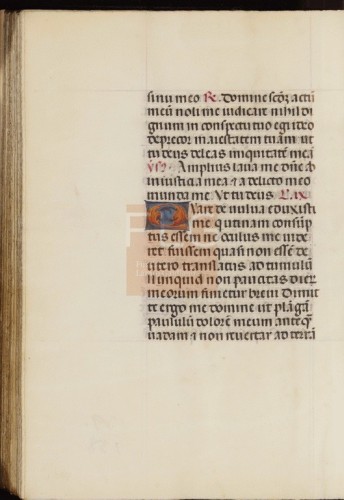 sinu meo R. Domine scdz actū
meū noli me iudicare nihil di
gnum in conspectu tuo egi ideo
deprecor maiestatem tuam ut
tu deus deleas iniquitatē meā
Amplius laua me dn̄e ab
iniusticia mea & a delicto meo
munda me Ut tu deus Lix
Quare de uulua eduxisti
me qui utinam consūp
tus essem ne oculus me uide
ret fuissem quasi non essē de
utero translatus ad tumulū
Nunquid non paucitas dier
meorum finietur breui Dimit
te ergo me domine ut plāgā
paululū dolorē meum anteq̄
uadam & non reuertar ad terrā